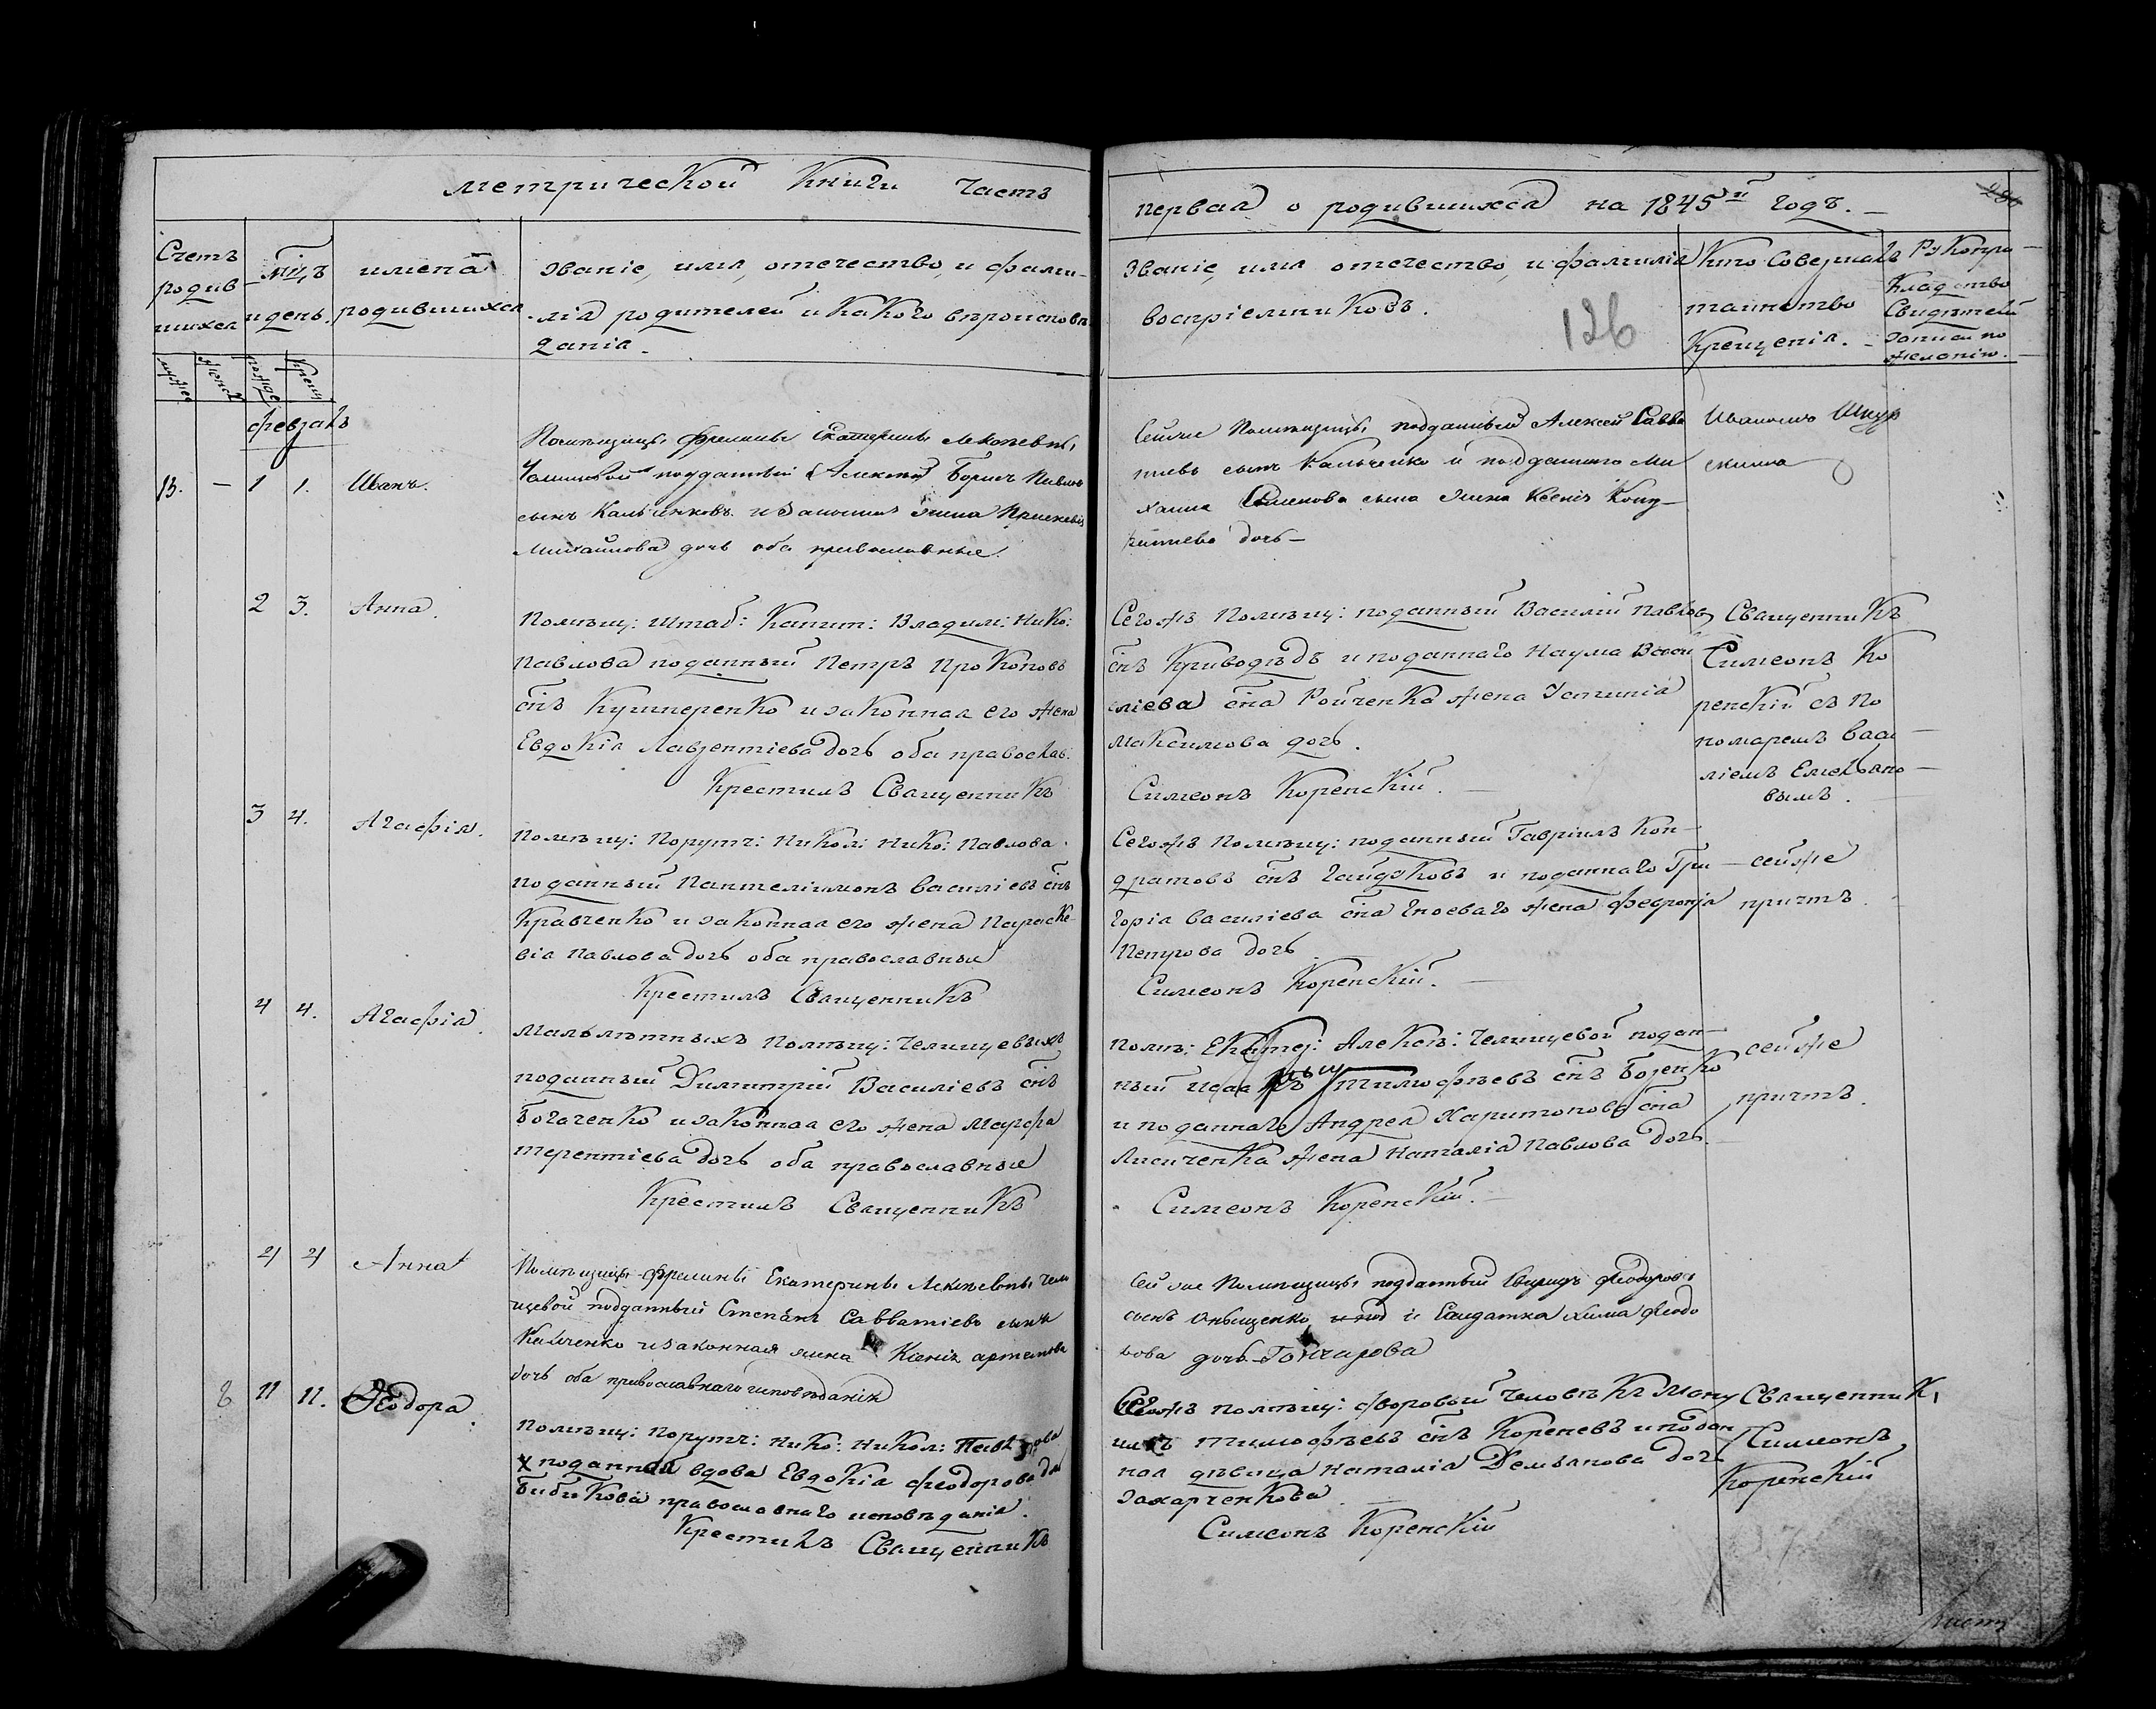 Метрической Книги часть
первая о родившихся на 1845й годъ.
126
Счетъ родив шихся
мцъ и день.
имена родившихся
Званіе, имя, отечество, и фами-
лія родителей и какого вѣроисповѣ
данія.
Званіе, имя отечество, и фамилія
воспріемниковъ.
Кто Совершалъ
таинство
Крещенія.
Рукопри-
кладство
Свидѣтелей
записи по
желанію.
февралъ
13. – 1 1. Иванъ.
Помѣщицы Фрелины Екатерины Алексѣевны
подданный Борисъ Павловъ
сынъ Кальченковъ и законная жена
Михайлова дочь оба православные.
Сей же Помѣщицы подданный Алексей Савва
тиевъ сынъ Кальченко и подданного Ми
хаила Семенова сына жена Ксенія
дочь –
Иваномъ
2 3. Анна.
Помѣщ: Штаб: Капит: Владим: Нико:
Павлова поданный Петръ Прокоповъ
снъ Кушнеренко и законная его жена
Евдокія Лаврентіева дочь оба православ:
Крестилъ Священникъ
Сегожъ Помѣщ: поданный Василій Павлов
снъ Криводѣдъ и поданнаго Наума Васи
ліева сна Ройченка жена Устинія
Максимова дочь.
Симеонъ Коренскій.
Священникъ
Симеонъ Ко
ренскій съ По
номаремъ Васи
ліемъ Емельяно
вымъ.
3 4. Агафія.
Помѣщ: Поруч: Никол: Нико: Павлова
поданный Пантелімонъ Василіевъ снъ
Кравченко и законная его жена Параске-
вія Павлова дочь оба православныя
Крестилъ Священникъ
Сегожъ Помѣщ: поданный Гавріилъ Кон-
дратовъ снъ Гайдуковъ и поданнаго Гри
горія Василіева сна Гноеваго жена Февронія
Петрова дочь
Симеонъ Коренскій.
сейже
причтъ.
4 4. Агафія.
Малолѣтныхъ Помѣщ: Челищевыхъ
поданный Димитрій Василіевъ снъ
Богаченко и законная его жена Марфа
Терентіева дочь оба православныя
Крестилъ Священникъ
Помѣ: Екатер: Алексѣ: Челищевой подан-
ный Исаакъ Тимофѣевъ снъ Боженко
и поданнаго Андрея Харитонова сна
Лисиченка жена Наталія Павлова дочь.
Симеонъ Коренскій.
сейже
причтъ.
4 4 Анна
Помѣщицы Фрелины Екатерины Алексѣевны Чели
щевой подданный Степанъ Савватіевъ сынъ
Кальченко и законная жена Ксенія Артемова
дочь оба православнаго исповѣданія
Сей же Помѣщицы подданный Свиридъ Феодоровъ
сынъ Онищенко и Солдатка Химія Феодо
рова дочь Гончарова
8 11 11. Феодора.
Помѣщ: Поруч: Нико: Никол: Павлова
поданная вдова Евдокія Феодорова до
Бибикова православнаго исповѣданія.
Крестилъ Священникъ
Сегожъ помѣщ: дворовый человѣкъ Ману
илъ Тимофѣевъ снъ Кореневъ и подан
ная дѣвица Наталія Демьянова дочь
Захарченкова.
Симеонъ Коренскій
Священник,
Симеонъ
Коренскій